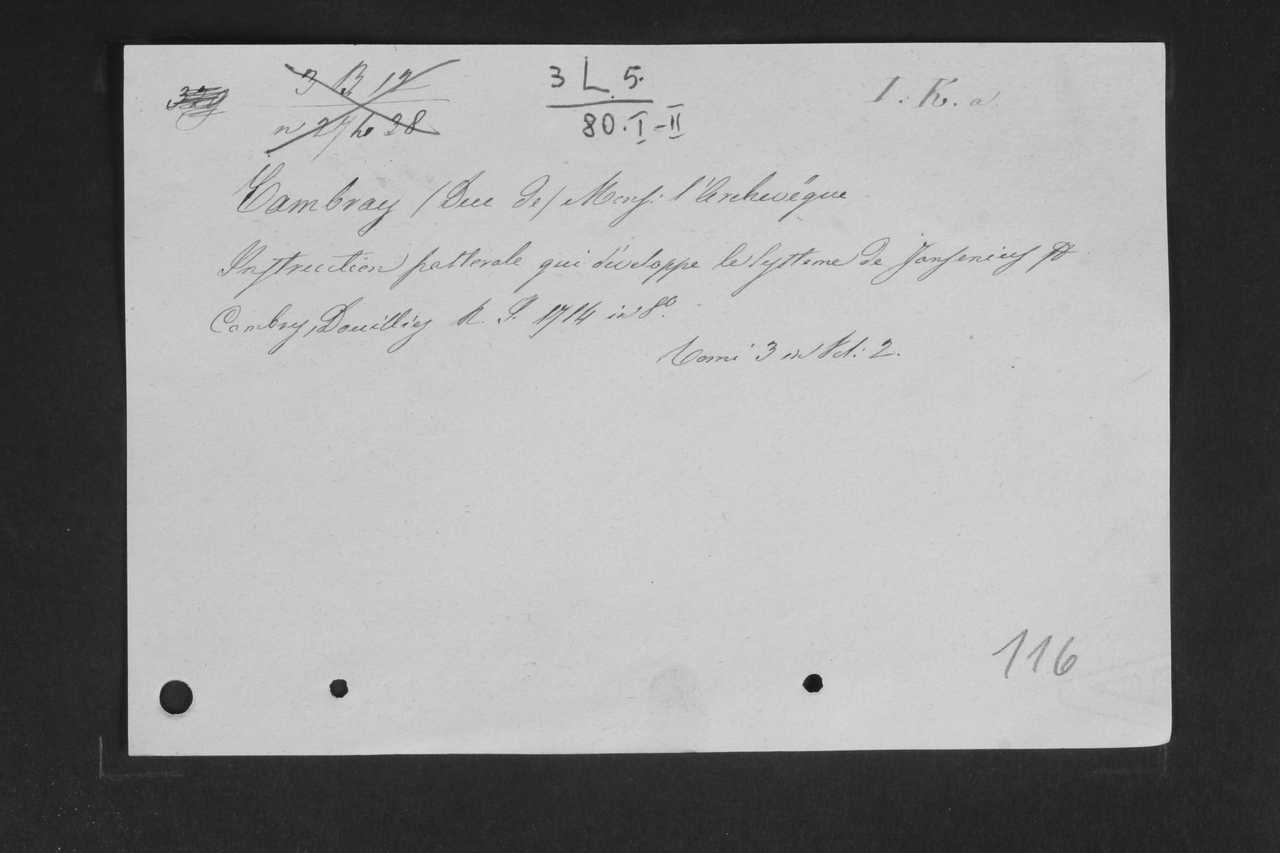 3 B 12
3 L. 5.
I. K. a
n 27 he 28
80. I-II
Cambray (Duc de) Monsʳ. l'Archevêque
Instruction pastorale qui développe le systeme de Jansenius
Cambray, Douillies R. P. 1714 in 8º.
Tomi 3 in Vol: 2.
116